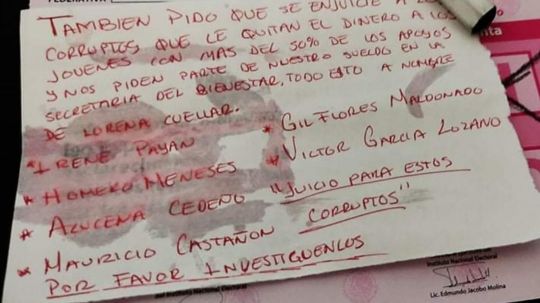 FEDERATIVA
TAMBIEN PIDO QUE SE ENJUICIE A LOS
CORRUPTOS QUE LE QUITAN EL DINERO A LOS
JOVENES CON MAS DEL 50% DE LOS APOYOS
Y NOS PIDEN PARTE DE NUESTRO SUELDO EN LA
SECRETARIA DEL BIENESTAR, TODO ESTO A NOMBRE
DE LORENA CUELLAR.
* IRENE PAYAN
* HOMERO MENESES
* AZUCENA CEDEÑO
* MAURICIO CASTAÑON
* GIL FLORES MALDONADO
* VICTOR GARCIA LOZANO
"JUICIO PARA ESTOS
CORRUPTOS"
POR FAVOR INVESTIGUENLOS
Instituto Nacional Electoral
Lic. Edmundo Jacobo Molina